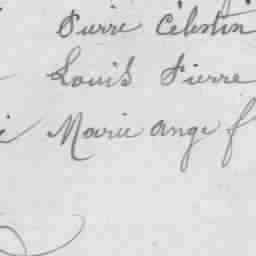 Pierre Célestin
Louis Pierre
Marie ange f